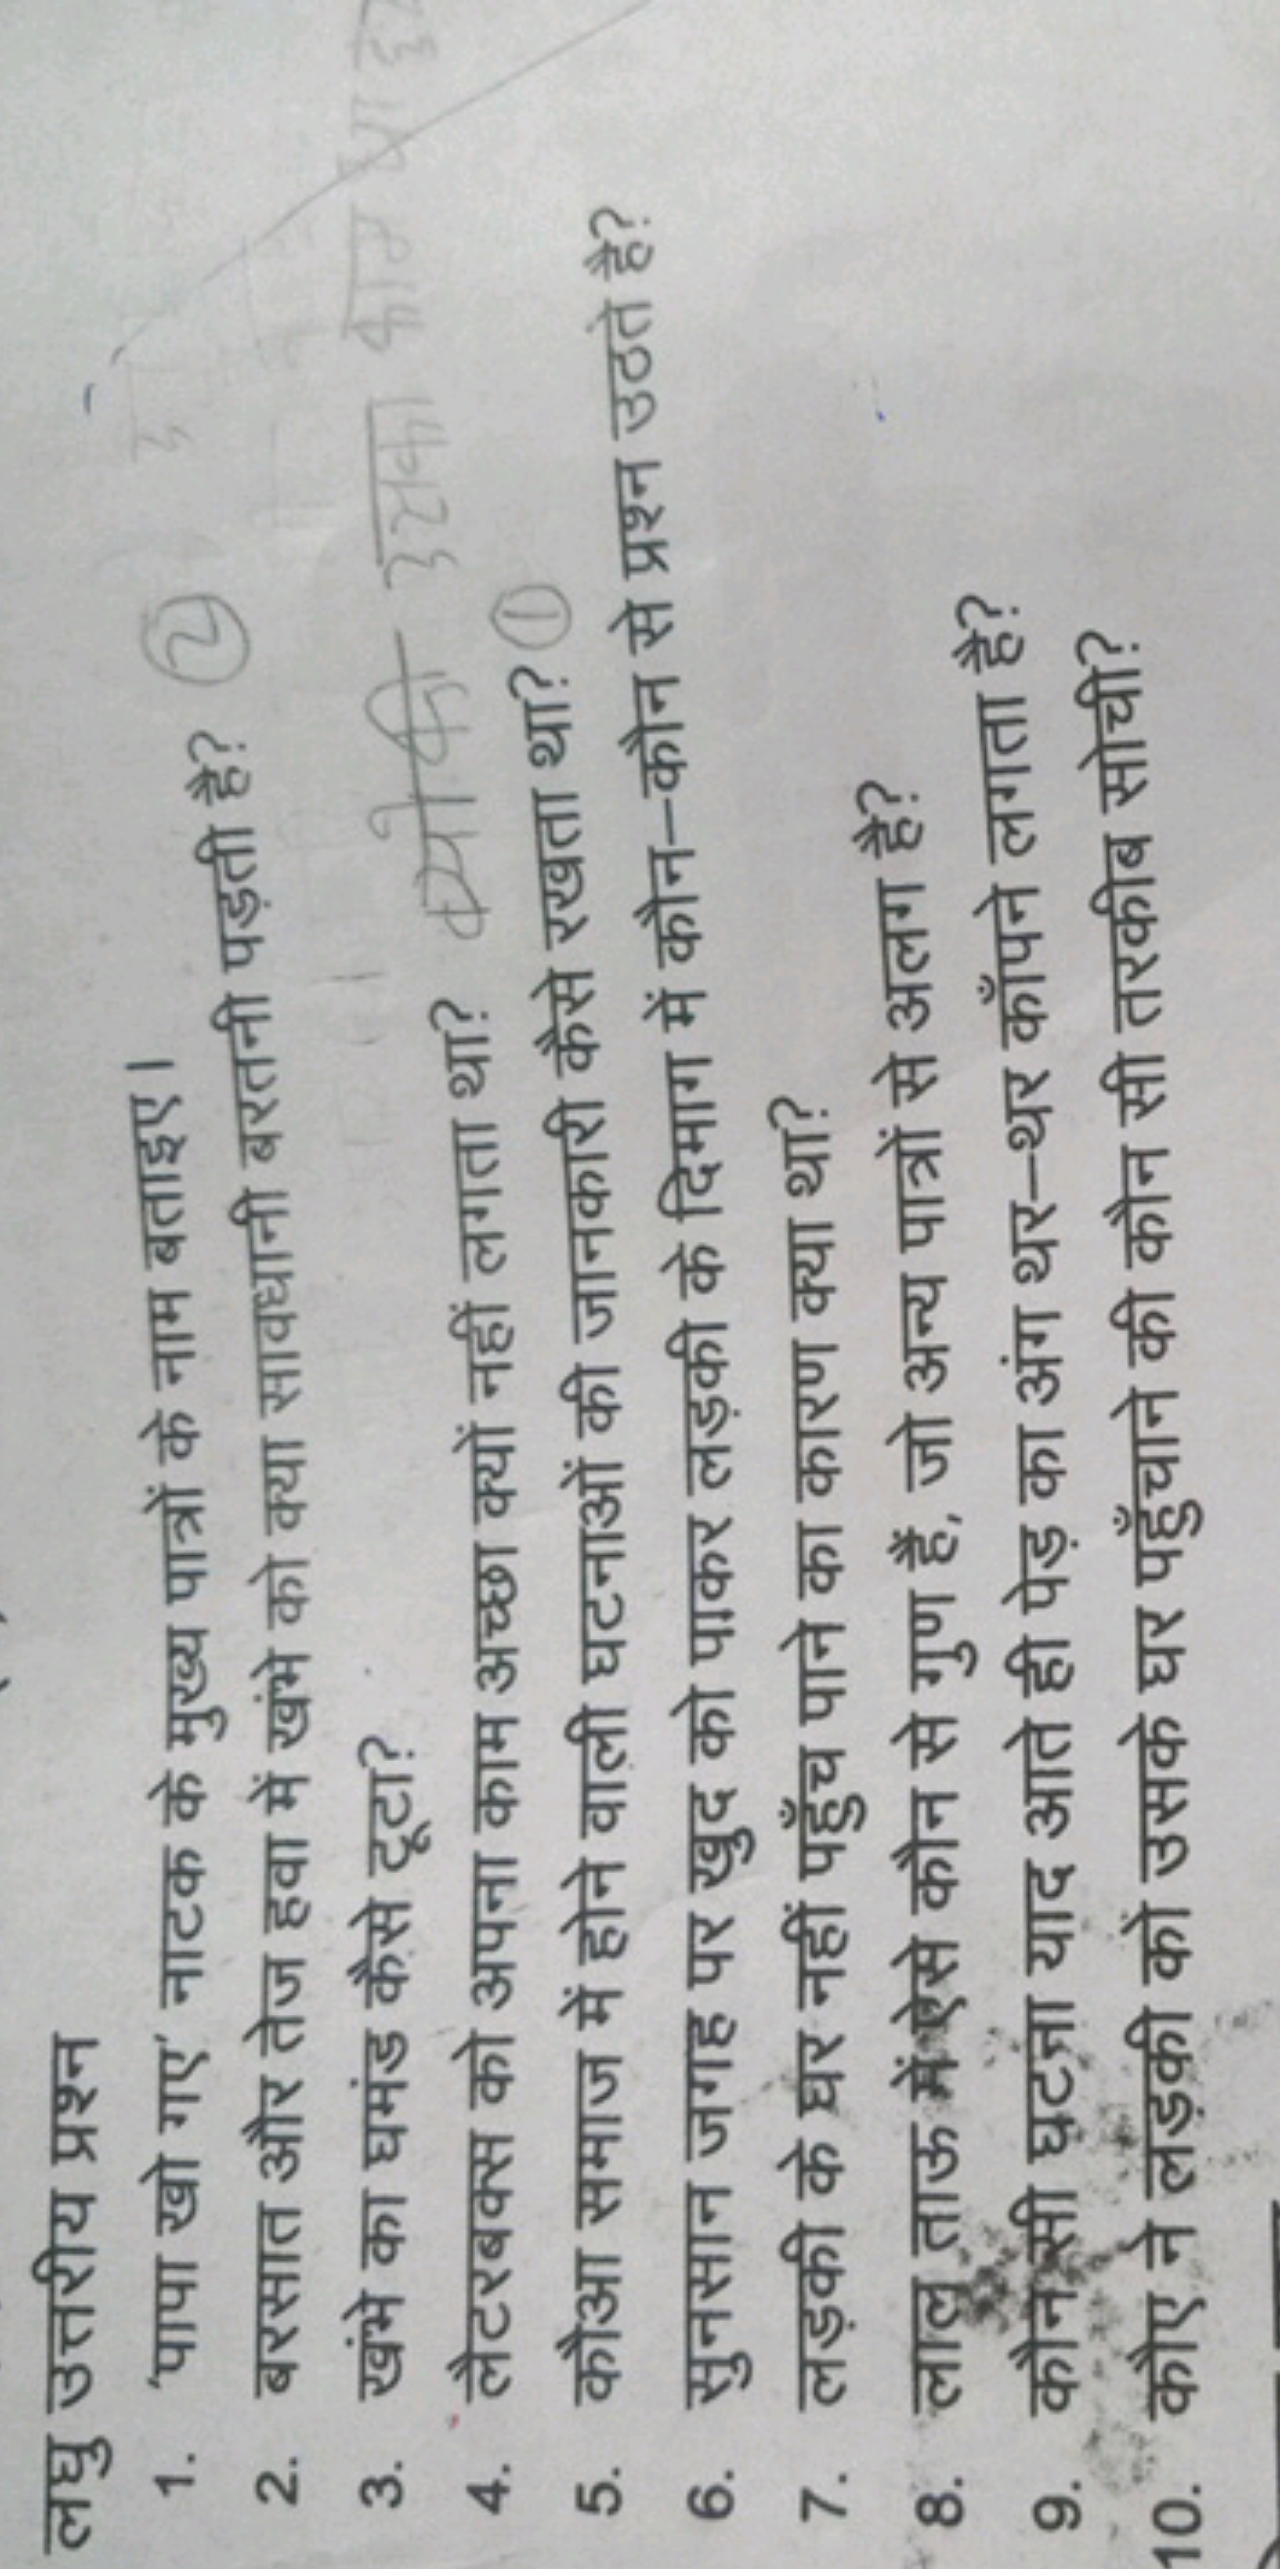 लघु उत्तरीय प्रश्न
1. 'पापा खो गए' नाटक के मुख्य पात्रों के नाम बताइए।
2. बरसात और तेज हवा में खंभे को क्या सावधानी बरतनी पड़ती है? 2
3. खंभे का घमंड कैसे टूटा?
4. लैटरबक्स को अपना काम अच्छा क्यों नहीं लगता था? क्योंकि इसका काम
5. कौआ समाज में होने वाली घटनाओं की जानकारी कैसे रखता था? 1
6. सुनसान जगह पर खुद को पाकर लड़की के दिमाग में कौन–कौन से प्रश्न उठते है?
7. लड़की के घर नहीं पहुँच पाने का कारण क्या था?
8. लाल ताऊ में ऐसे कौन से गुण हैं, जो अन्य पात्रों से अलग है?
9. कौन सी घटना याद आते ही पेड़ का अंग थर–थर काँपने लगता है?
10. कौए ने लड़की को उसके घर पहुँचाने की कौन सी तरकीब सोची?